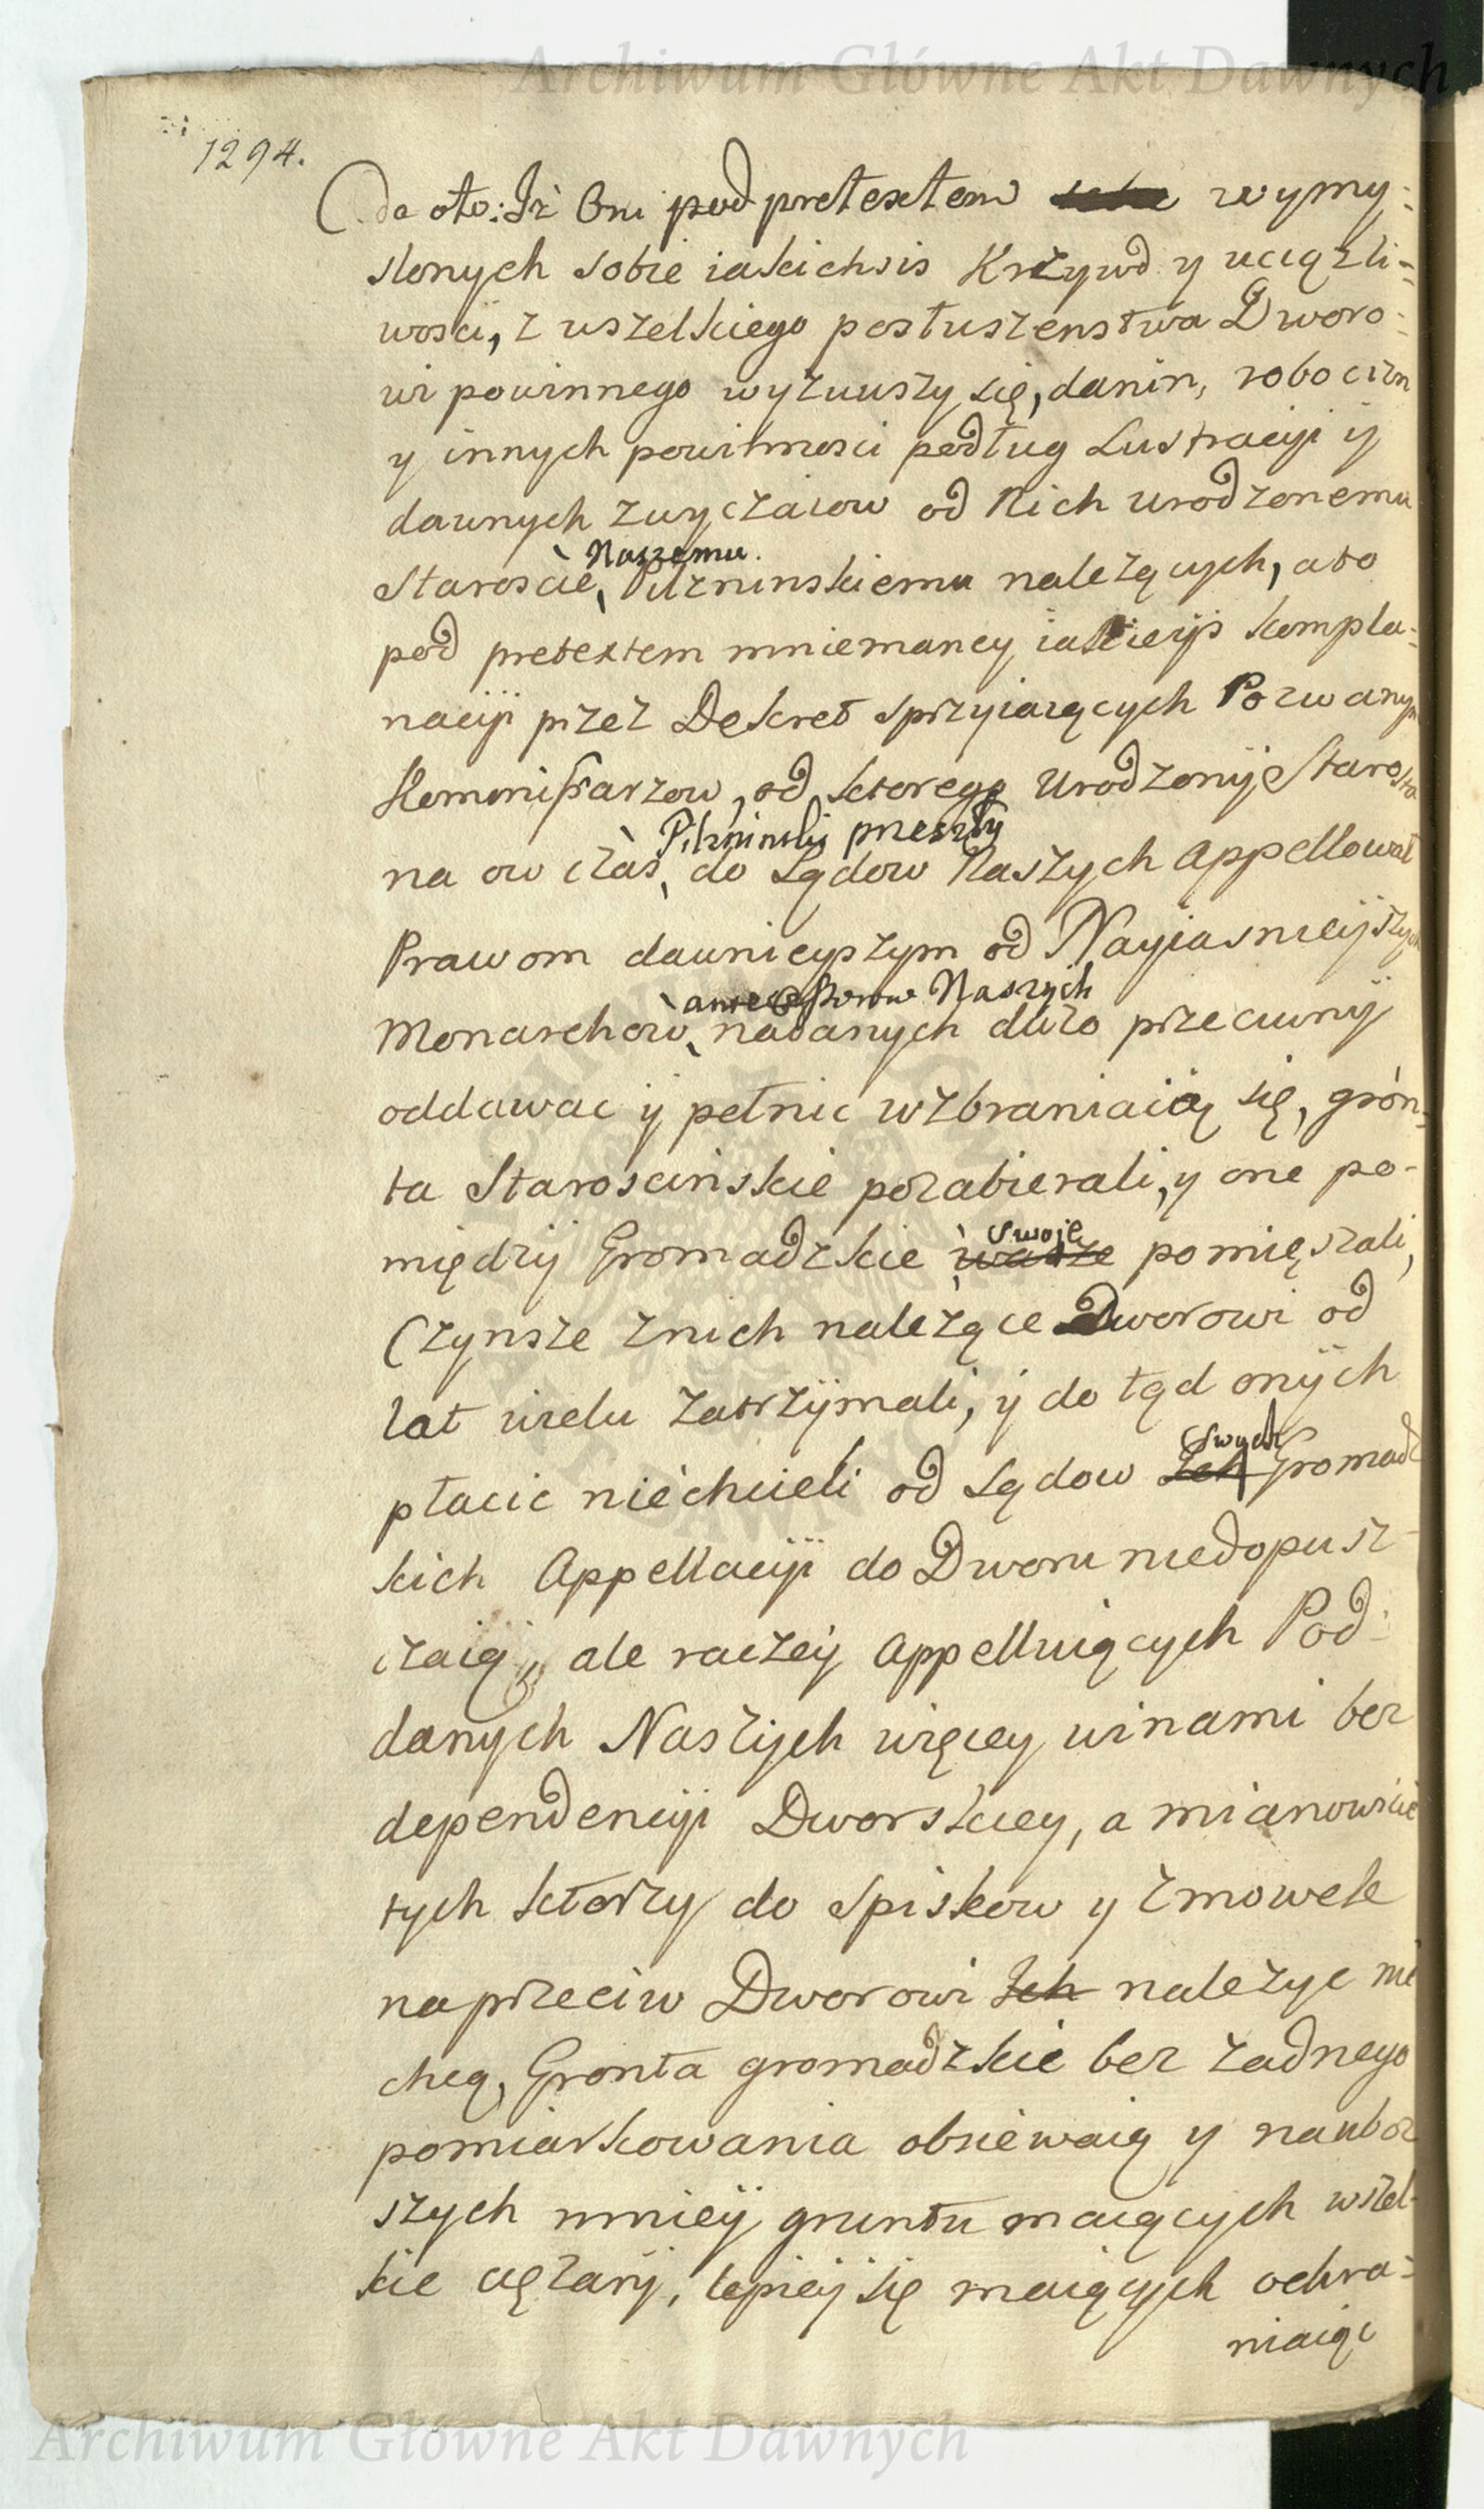 Archiwum Główne Akt Dawnych
1294.
da oto: Iż Oni pod pretextem wymy-
slonych sobie iakichsis Krzywd y uciązli-
wosci, z wszelkiego posłuszenstwa Dworo-
wi powinnego wyzuwszy się, danin, robocizn
y innych powinnosci podług Lustracyi y
dawnych zwyczaiow od Nich urodzonemu
Naszemu
Staroscie Pilzninskiemu należących, a to
pod pretextem mniemaney iakieys kompla-
nacyi przez Dekret sprzyiaiących Pozwanym
Kommissarzow, od ktorego Urodzony Starosta
Pilzninski przeszły
na ow czas do Sądow Naszych appellował
Prawom dawnieyszym od Nayiasnieyszych
antecessorow Naszych
Monarchow nadanych dużo przeciwny
oddawac y pełnic wzbraniaią się, gron-
ta Staroscińskie pozabierali, y one po-
między Gromadzkie swoje
wasze pomięszali,
Czynsze znich należące Dworowi od
lat wielu zatrzymali, y do tąd onych
swych
płacic niechcieli od Sądow Ich Gromadz
kich Appellacyi do Dworu niedopusz-
czaią, ale raczey appelluiących Pod-
danych Naszych więcey winami bez
dependencyi Dworskiey, a mianowicie
tych ktorzy do spiskow y zmowek
naprzeciw Dworowi Ich należyc nie
chcą, Gronta gromadzkie bez żadnego
pomiarkowania obsiewaią y nauboż
szych mniey gruntu maiących wszel-
kie ciężary, lepiey się maiących ochra-
niaiąc
Archiwum Główne Akt Dawnych